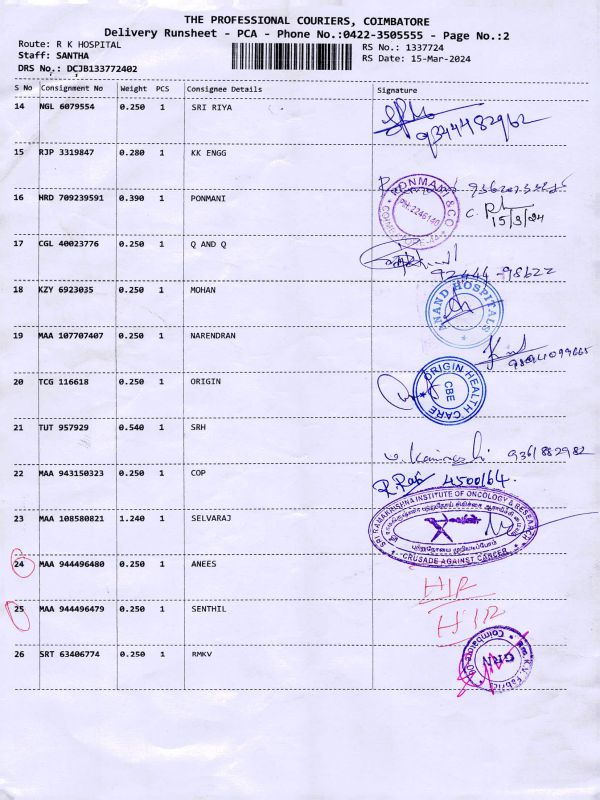 THE PROFESSIONAL COURIERS, COIMBATORE
Delivery Runsheet - PCA - Phone No.:0422-3505555 - Page No.:2
Route: R K HOSPITAL
Staff: SANTHA
DRS No.: DCJB133772402
RS No.: 1337724
RS Date: 15-Mar-2024
S No Consignment No Weight PCS Consignee Details Signature
14 NGL 6079554 0.250 1 SRI RIYA
9344482962
15 RJP 3319847 0.280 1 KK ENGG
16 HRD 709239591 0.390 1 PONMANI
PONMANI & CO
PH:2246140
15/3/24
17 CGL 40023776 0.250 1 Q AND Q
92444-98622
18 KZY 6923035 0.250 1 MOHAN
ANAND HOSPITALS
19 MAA 107707407 0.250 1 NARENDRAN
20 TCG 116618 0.250 1 ORIGIN
ORIGIN HEALTH CARE
CBE
21 TUT 957929 0.540 1 SRH
9361882982
22 MAA 943150323 0.250 1 COP
4500164.
23 MAA 108580821 1.240 1 SELVARAJ
SRI RAMAKRISHNA INSTITUTE OF ONCOLOGY & RESEARCH
CRUSADE AGAINST CANCER
24 MAA 944496480 0.250 1 ANEES
HIR
25 MAA 944496479 0.250 1 SENTHIL
HIR
26 SRT 63406774 0.250 1 RMKV
GRN